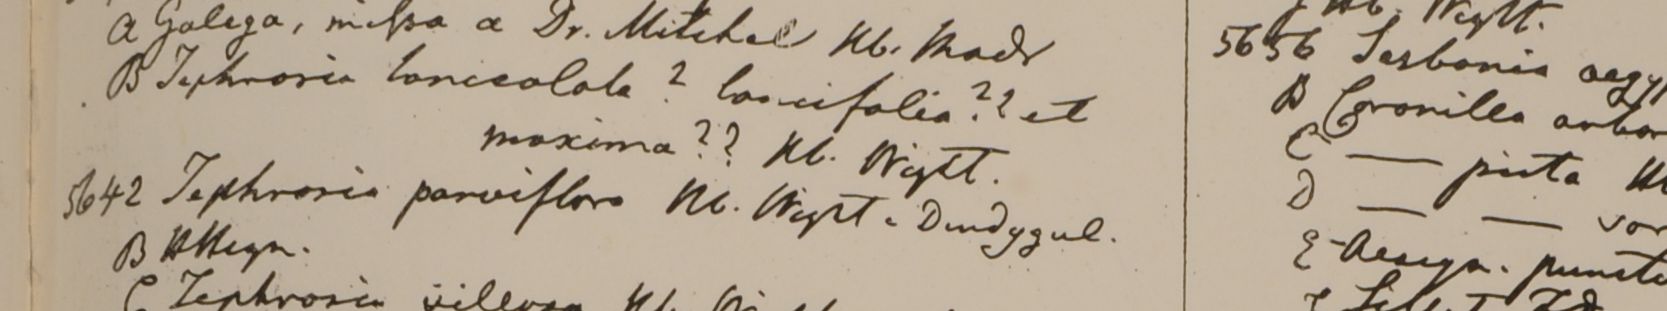 A Galega, missa a Dr. Mitchel Hb. Madr
B Tephrosia lanceolata? lancifolia?? et
maxima?? Hb. Wight.
5642 Tephrosia parviflora Hb. Wight e Dindygul.
B HHeyn.
C Tephrosia villosa Hb.
Hb. Wight.
5656 Sesbania aegy
B Coronilla arbor
C — picta H
D — — 
E Aesyn. puncta